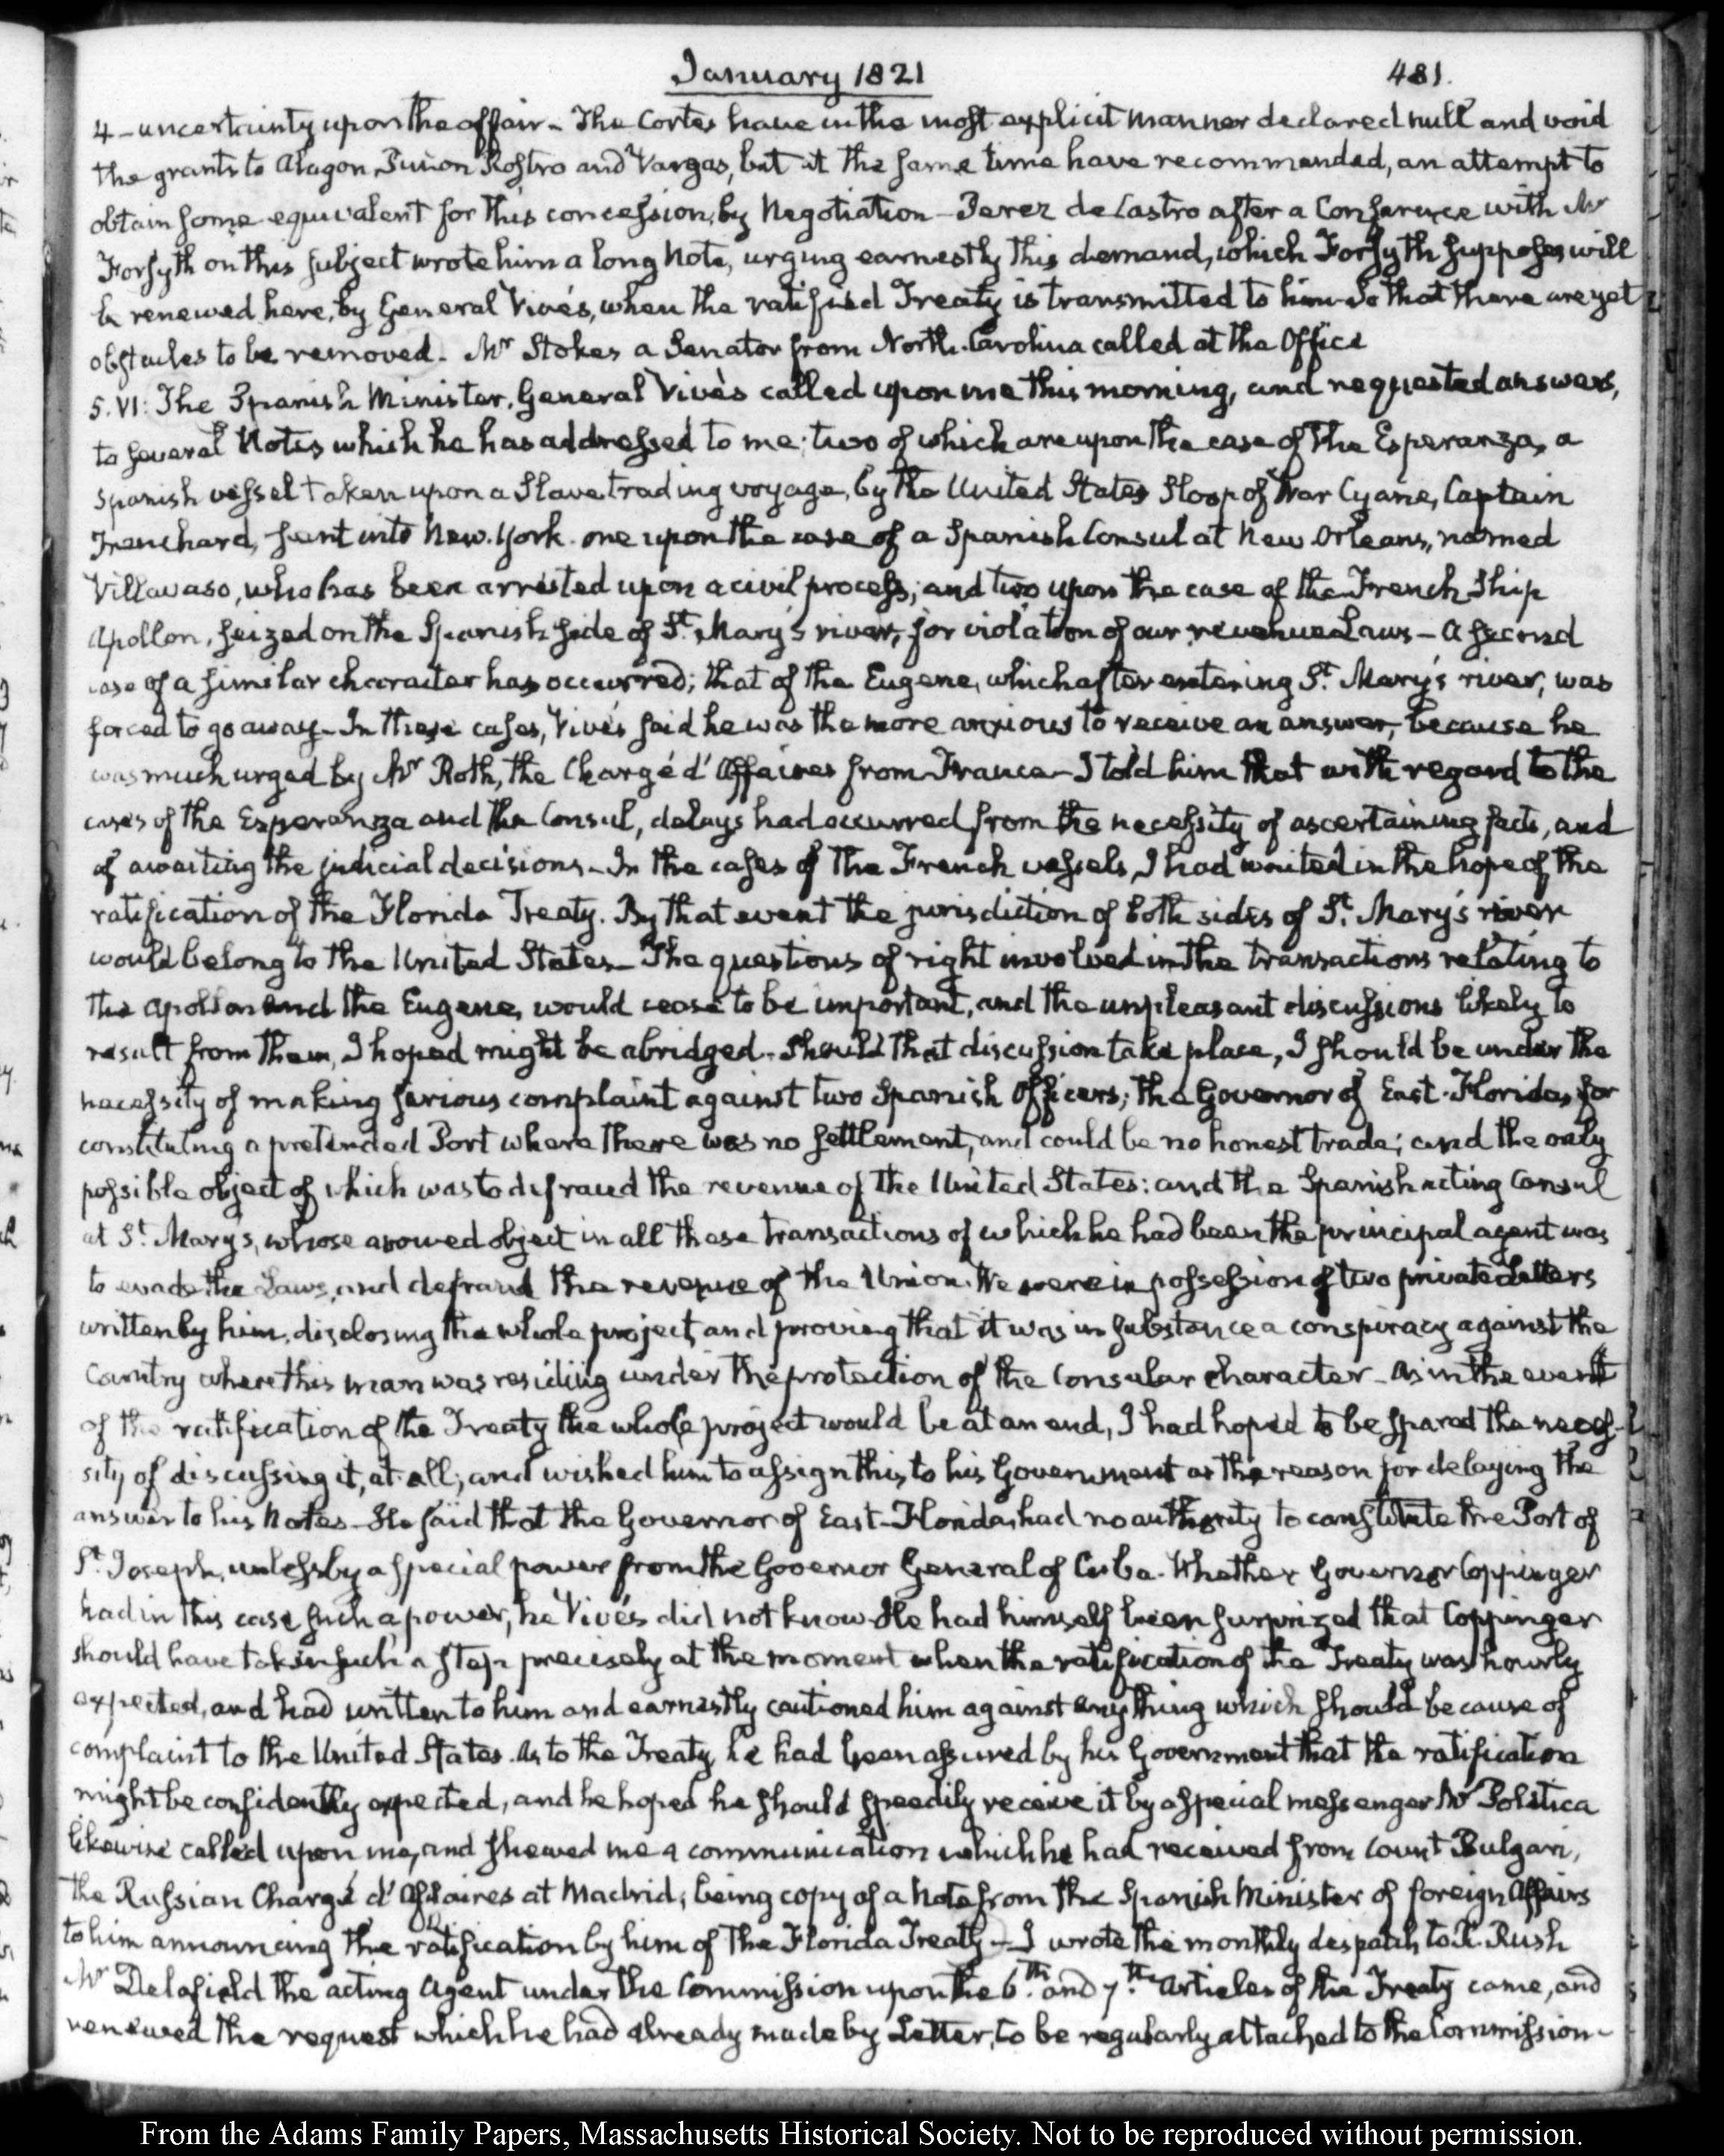 January 1821
481.
4 - uncertainty upon the affair - The Cortes have in the most explicit manner declared null and void
the grants to Alagon Puñon Rostro and Vargas, but at the same time have recommended, an attempt to
obtain some equivalent for this concession, by Negotiation - Perez de Castro after a Conference with Mr
Forsyth on this subject wrote him a long Note, urging earnestly this demand, which Forsyth supposes will
be renewed here, by General Vivés, when the ratified Treaty is transmitted to him. So that there are yet
obstacles to be removed. Mr Stokes a Senator from North-Carolina called at the Office
5. VI: The Spanish Minister, General Vivés called upon me this morning, and requested answers,
to several Notes which he has addressed to me; two of which are upon the case of the Esperanza, a
Spanish vessel taken upon a Slave trading voyage, by the United States Sloop of War Cyane, Captain
Trenchard, sent into New-York. one upon the case of a Spanish Consul at New Orleans, named
Villavaso, who has been arrested upon a civil process; and two upon the case of the French Ship
Apollon, seized on the Spanish side of St. Mary's river, for violation of our revenue Laws - A second
case of a similar character has occurred; that of the Eugene, which after entering St. Mary's river, was
forced to go away - In these cases, Vivés said he was the more anxious to receive an answer, because he
was much urged by Mr Roth, the Chargé d'Affaires from France - I told him that with regard to the
cases of the Esperanza and the Consul, delays had occurred from the necessity of ascertaining facts, and
of awaiting the judicial decisions - In the cases of the French vessels, I had waited in the hope of the
ratification of the Florida Treaty. By that event the jurisdiction of both sides of St. Mary's river
would belong to the United States - The questions of right involved in the transactions relating to
the Apollon and the Eugene, would cease to be important, and the unpleasant discussions likely to
result from them, I hoped might be abridged. Should that discussion take place, I should be under the
necessity of making serious complaint against two Spanish Officers; the Governor of East-Florida, for
constituting a pretended Port where there was no settlement, and could be no honest trade; and the only
possible object of which was to defraud the revenue of the United States: and the Spanish acting Consul
at St. Mary's, whose avowed object in all these transactions of which he had been the principal agent was
to evade the Laws, and defraud the revenue of the Union. We were in possession of two private Letters
written by him, disclosing the whole project, and proving that it was in substance a conspiracy against the
Country where this man was residing under the protection of the Consular character - As in the event
of the ratification of the Treaty the whole project would be at an end, I had hoped to be spared the neces-
sity of discussing it, at all; and wished him to assign this, to his Government as the reason for delaying the
answer to his Notes - He said that the Governor of East-Florida, had no authority to constitute the Port of
St. Joseph, unless by a special power from the Governor General of Cuba. Whether Governor Coppinger
had in this case such a power, he Vivés did not know. He had himself been surprized that Coppinger
should have taken such a step precisely at the moment when the ratification of the Treaty was hourly
expected, and had written to him and earnestly cautioned him against any thing which should be cause of
complaint to the United States. As to the Treaty, he had been assured by his Government that the ratification
might be confidently expected, and he hoped he should speedily receive it by a special messenger Mr Politica
likewise called upon me, and shewed me a communication which he had received from Count Bulgari,
the Russian Chargé d'Affaires at Madrid; being copy of a Note from the Spanish Minister of foreign Affairs
to him announcing the ratification by him of the Florida Treaty - I wrote the monthly despatch to R. Rush
Mr Delafield the acting Agent under the Commission upon the 6th. and 7th. Articles of the Treaty came, and
renewed the request which he had already made by Letter, to be regularly attached to the Commission -
From the Adams Family Papers, Massachusetts Historical Society. Not to be reproduced without permission.